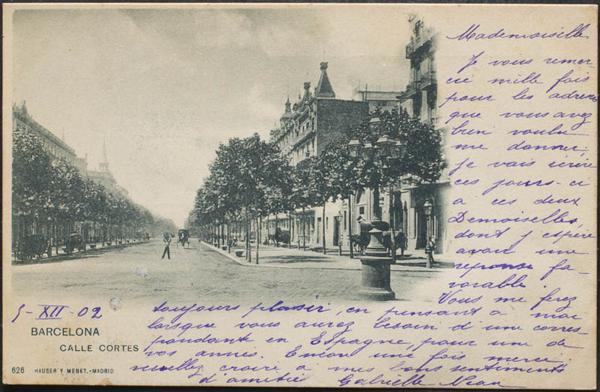 Mademoiselle
Je vous remer
cie mille fois
pour les adresses
que vous avez
bien voulu
me donner.
Je vais écrire
ces jours-ci
a ces deux
Demoiselles
dont j'espère
avoir une
reponse fa-
vorable.
Vous me ferez
toujours plaisir, en pensant a moi
lorsque vous aurez besoin d'une corres
pondante en Espagne, pour une de
vos amies. Encore une fois merci,
veuillez croire a mes bons sentiments
d'amitiés Gabrielle
5-XII-02
BARCELONA
CALLE CORTES
626 HAUSER Y MENET.-MADRID